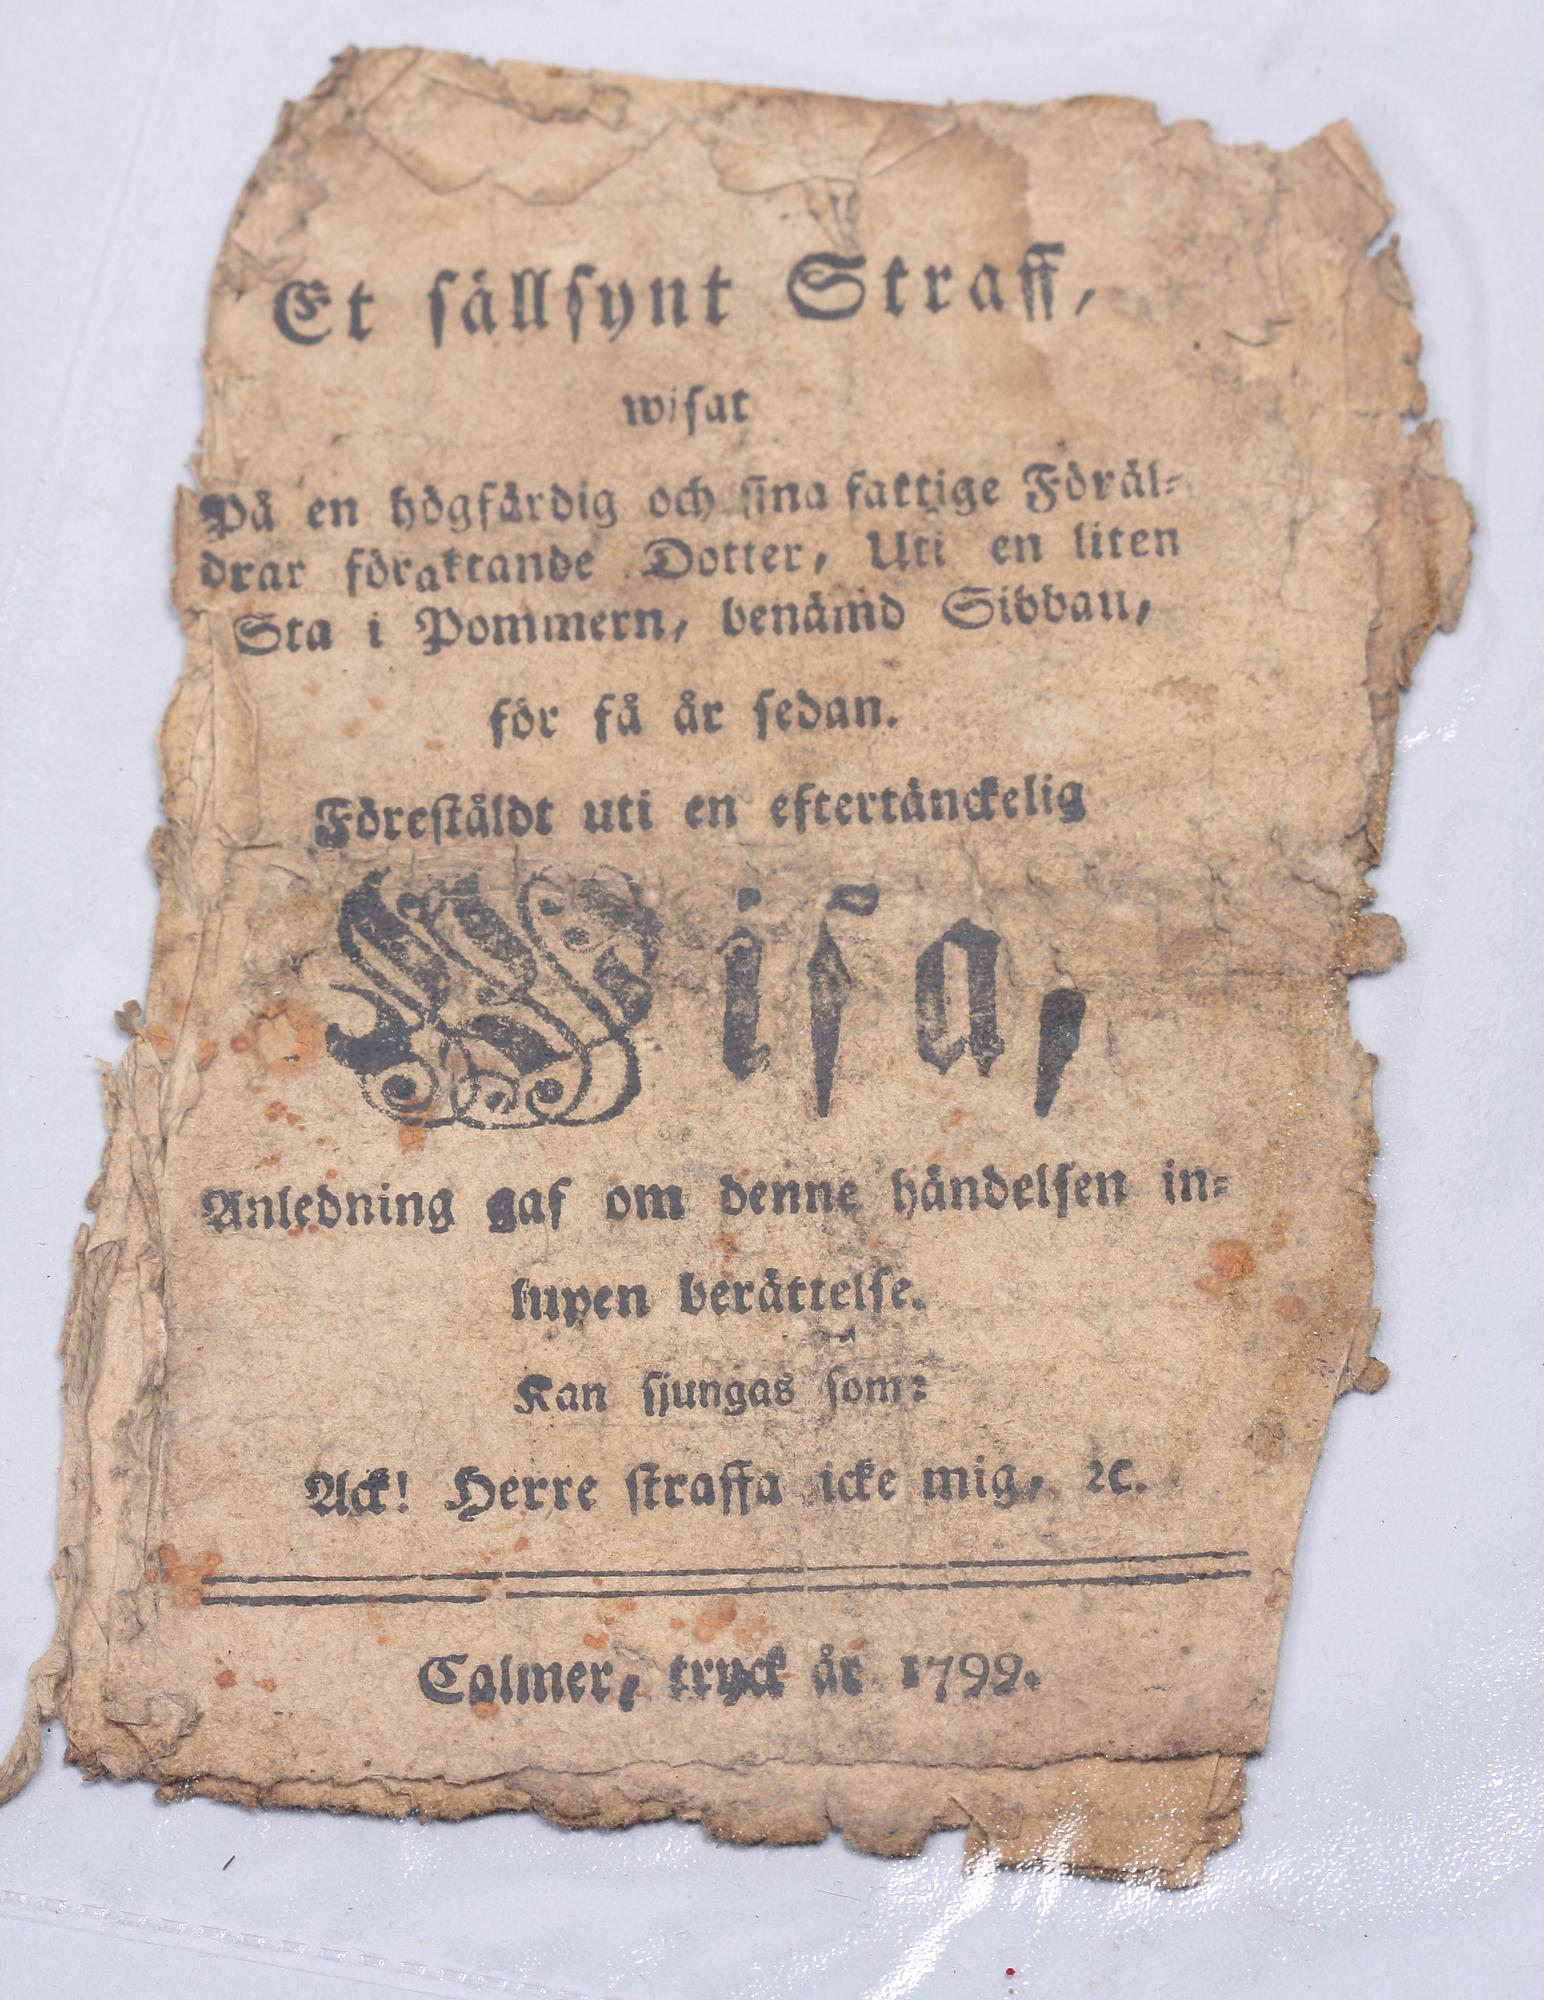 Et sällsynt Straff,
wisat
På en högfärdig och sina fattige Föräl-
drar föraktande Dotter, Uti en liten
Sta i Pommern, benämd Sibbau,
för få år sedan.
Förestäldt uti en eftertänckelig
Wisa,
Anledning gaf om denne händelsen in-
lupen berättelse.
Kan sjungas som:
Ack! Herre straffa icke mig, ꝛc.
Calmer, tryck år 1799.